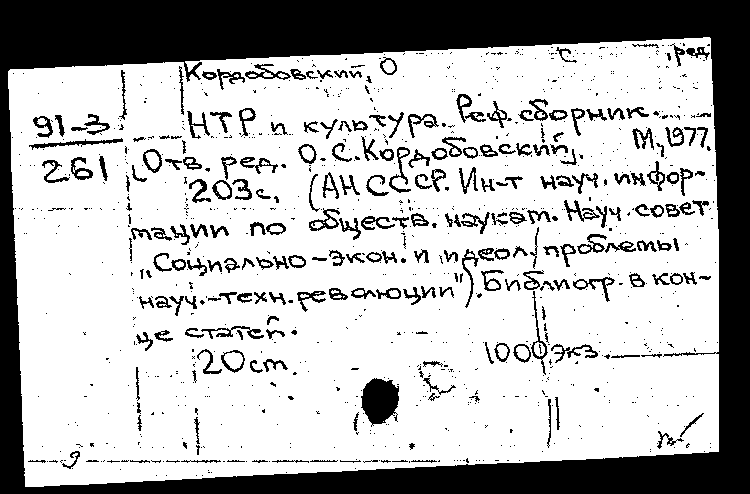 Кордобовский, О С , ред
91-3
261
НТР и культура. Реф. сборник.
[Отв. ред. О.С.Кордобовский]. М., 1977.
203с. (АН СССР. Ин-т науч. инфор-
мации по обществ. наукам. Науч. совет
„Социально-экон. и идеол. проблемы
науч.-техн. революции"). Библиогр. в кон-
це статей.
20см. 1000 экз.
9